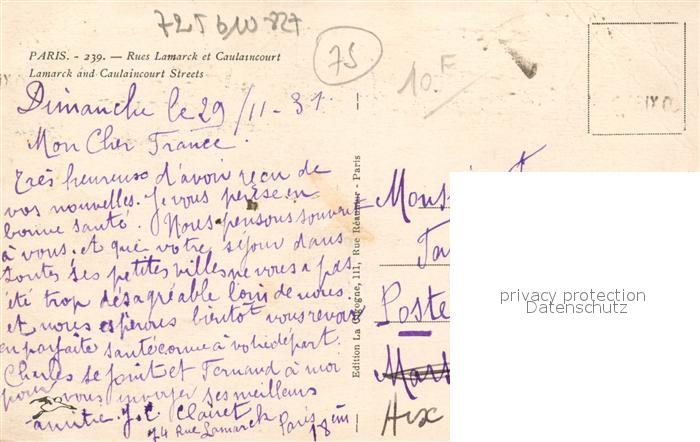 725 610 827
PARIS. - 239. — Rues Lamarck et Caulaincourt
Lamarck and Caulaincourt Streets
75
10.F
Dimanche le 29/11-31
Mon Cher France.
très heureux d'avoir reçu de
vos nouvelles. Je vous pense en
bonne santé. Nous pensons souvent
à vous. et que votre séjour dans
toutes ses petites villes ne vous a pas
été trop désagréable loin de nous.
et nous espérons bientôt vous revoir
en parfaite santé comme à votre départ.
Charles se joint et Fernand à moi
pour vous envoyer ses meilleurs
amitié. J. C. Clairet
74 Rue Lamarck Paris
18em
Edition La Cigogne, 111, Rue Réaumur - Paris
Mons
Poste
Mars
Aix
privacy protection
Datenschutz